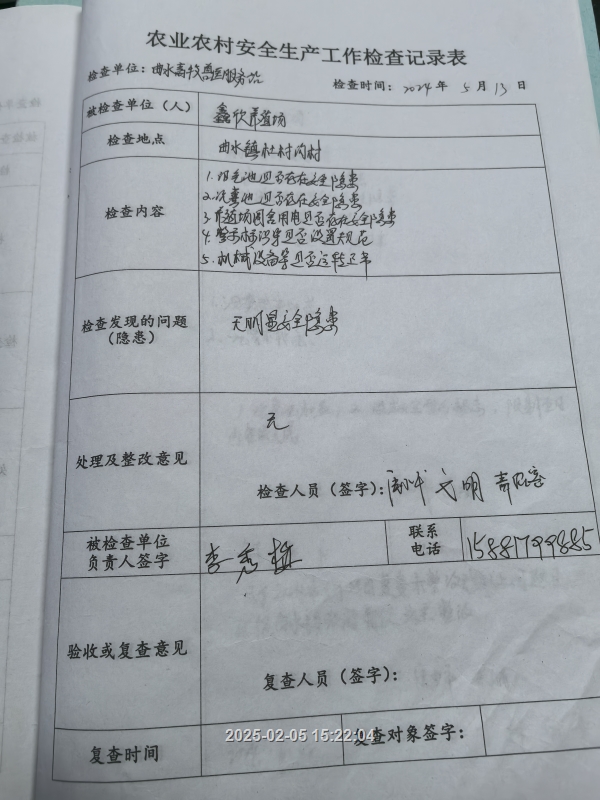 农业农村安全生产工作检查记录表
检查单位：曲水畜牧兽医服务站
检查时间：2024年 5月13日
被检查单位（人） 鑫欣养殖场
检查地点 曲水镇杜村沟村
检查内容
1.沼气池是否存在安全隐患
2.沉粪池是否存在安全隐患
3.养殖场圈舍用电是否存在安全隐患
4.警示标识等是否设置规范
5.机械设备等是否运转正常
检查发现的问题
（隐患）
无明显安全隐患
处理及整改意见
无
检查人员（签字）：
被检查单位
负责人签字
李秀梅
联系
电话
15881799885
验收或复查意见
复查人员（签字）：
复查时间
复查对象签字：
2025-02-05 15:22:04